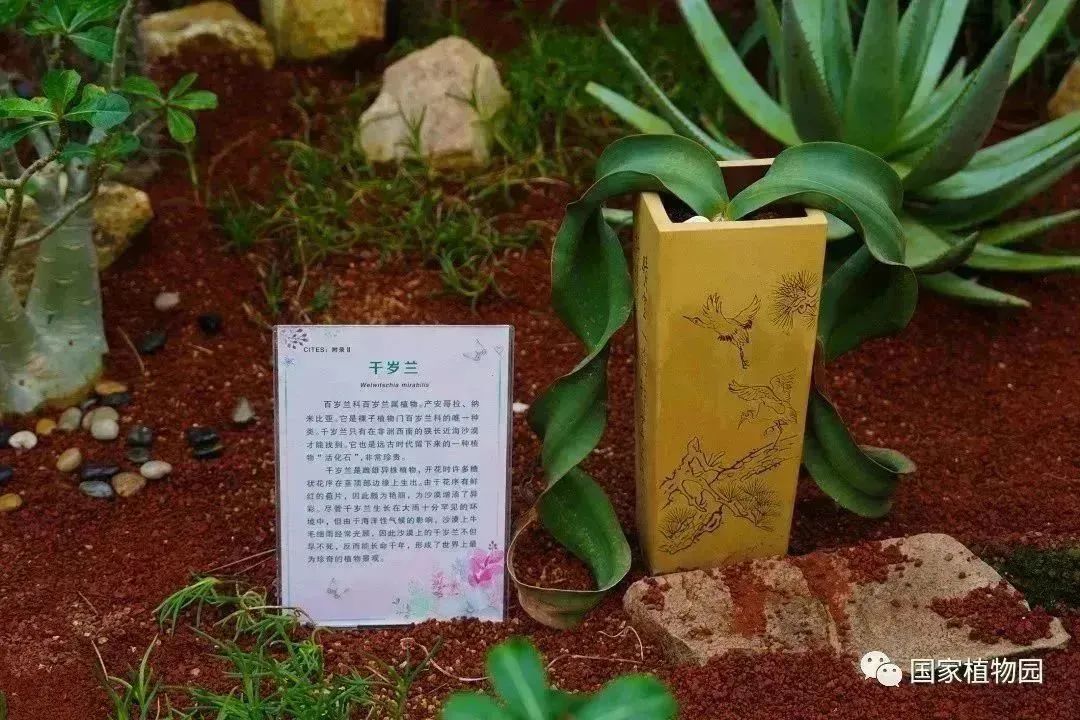 CITES：附录 II
千岁兰
Welwitschia mirabilis
百岁兰科百岁兰属植物。产安哥拉、纳
米比亚。它是裸子植物门百岁兰科的唯一种
类。千岁兰只有在非洲西南的狭长近海沙漠
才能找到。它也是远古时代留下来的一种植
物“活化石”，非常珍贵。
千岁兰是雌雄异株植物，开花时许多穗
状花序在茎顶部边缘上生出。由于花序有鲜
红的苞片，因此颇为艳丽，为沙漠增添了异
彩。尽管千岁兰生长在大雨十分罕见的环
境中，但由于海洋性气候的影响，沙漠上牛
毛细雨经常光顾，因此沙漠上的千岁兰不但
旱不死，反而能长命千年，形成了世界上最
为珍奇的植物景观。
国家植物园